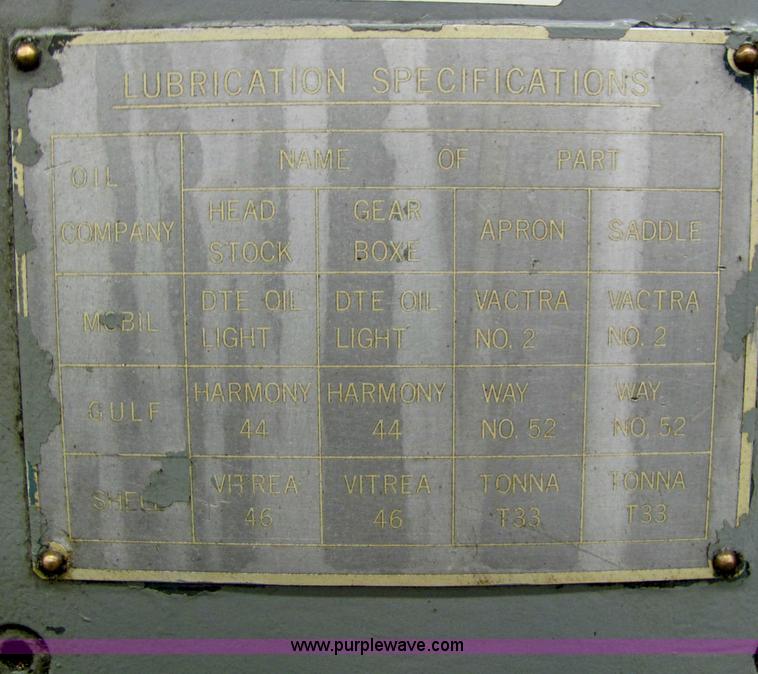 LUBRICATION SPECIFICATIONS
OIL COMPANY
NAME OF PART
HEAD STOCK
GEAR BOXE
APRON
SADDLE
MOBIL
DTE OIL LIGHT
DTE OIL LIGHT
VACTRA NO. 2
VACTRA NO. 2
GULF
HARMONY 44
HARMONY 44
WAY NO. 52
WAY NO. 52
SHELL
VITREA 46
VITREA 46
TONNA T33
TONNA T33
www.purplewave.com